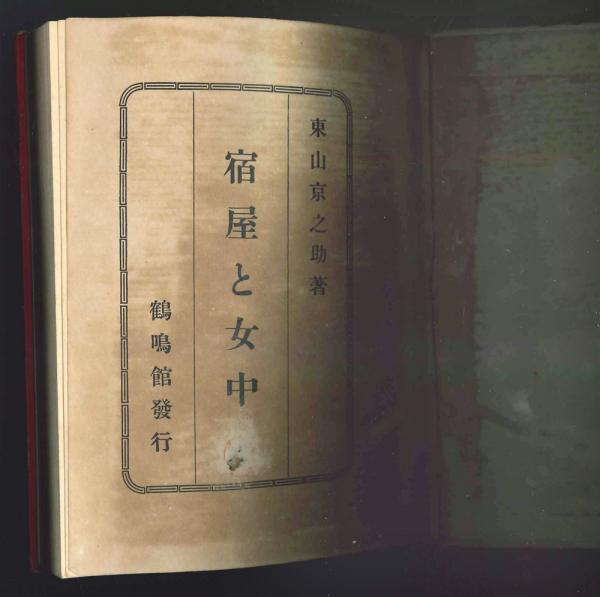 東山京之助著
宿屋と女中
鶴鳴館發行